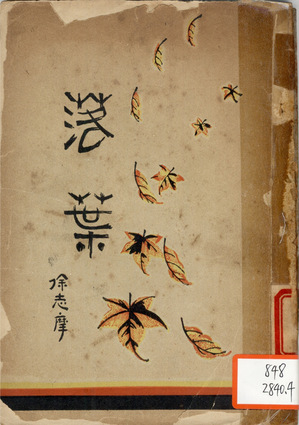 落葉
徐志摩
848
2840.4